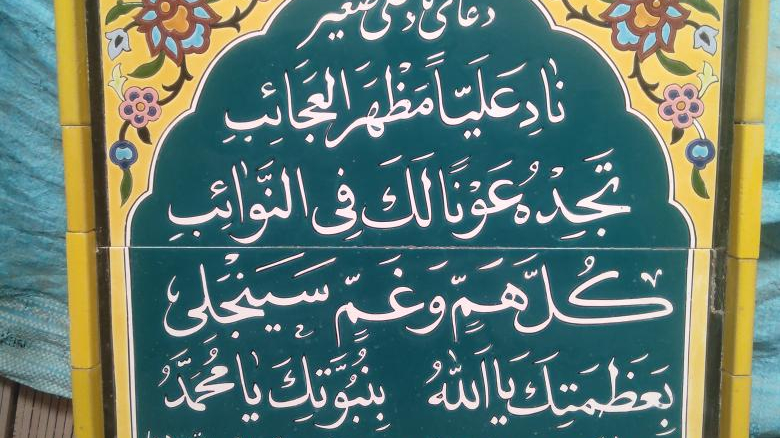 دعای ناد علی صغیر
نادِ عَلَیّاً مَظْهَرَ العَجَائِبِ
تَجِدْهُ عَوْنًا لَكَ فِی النَّوٰائِبِ
كُلُّ هَمٍّ وَ غَمٍّ سَیَنْجَلی
بِعَظَمَتِكَ یَا اَللهُ بِنُبُوَّتِكَ یٰا مُحَمَّدُ